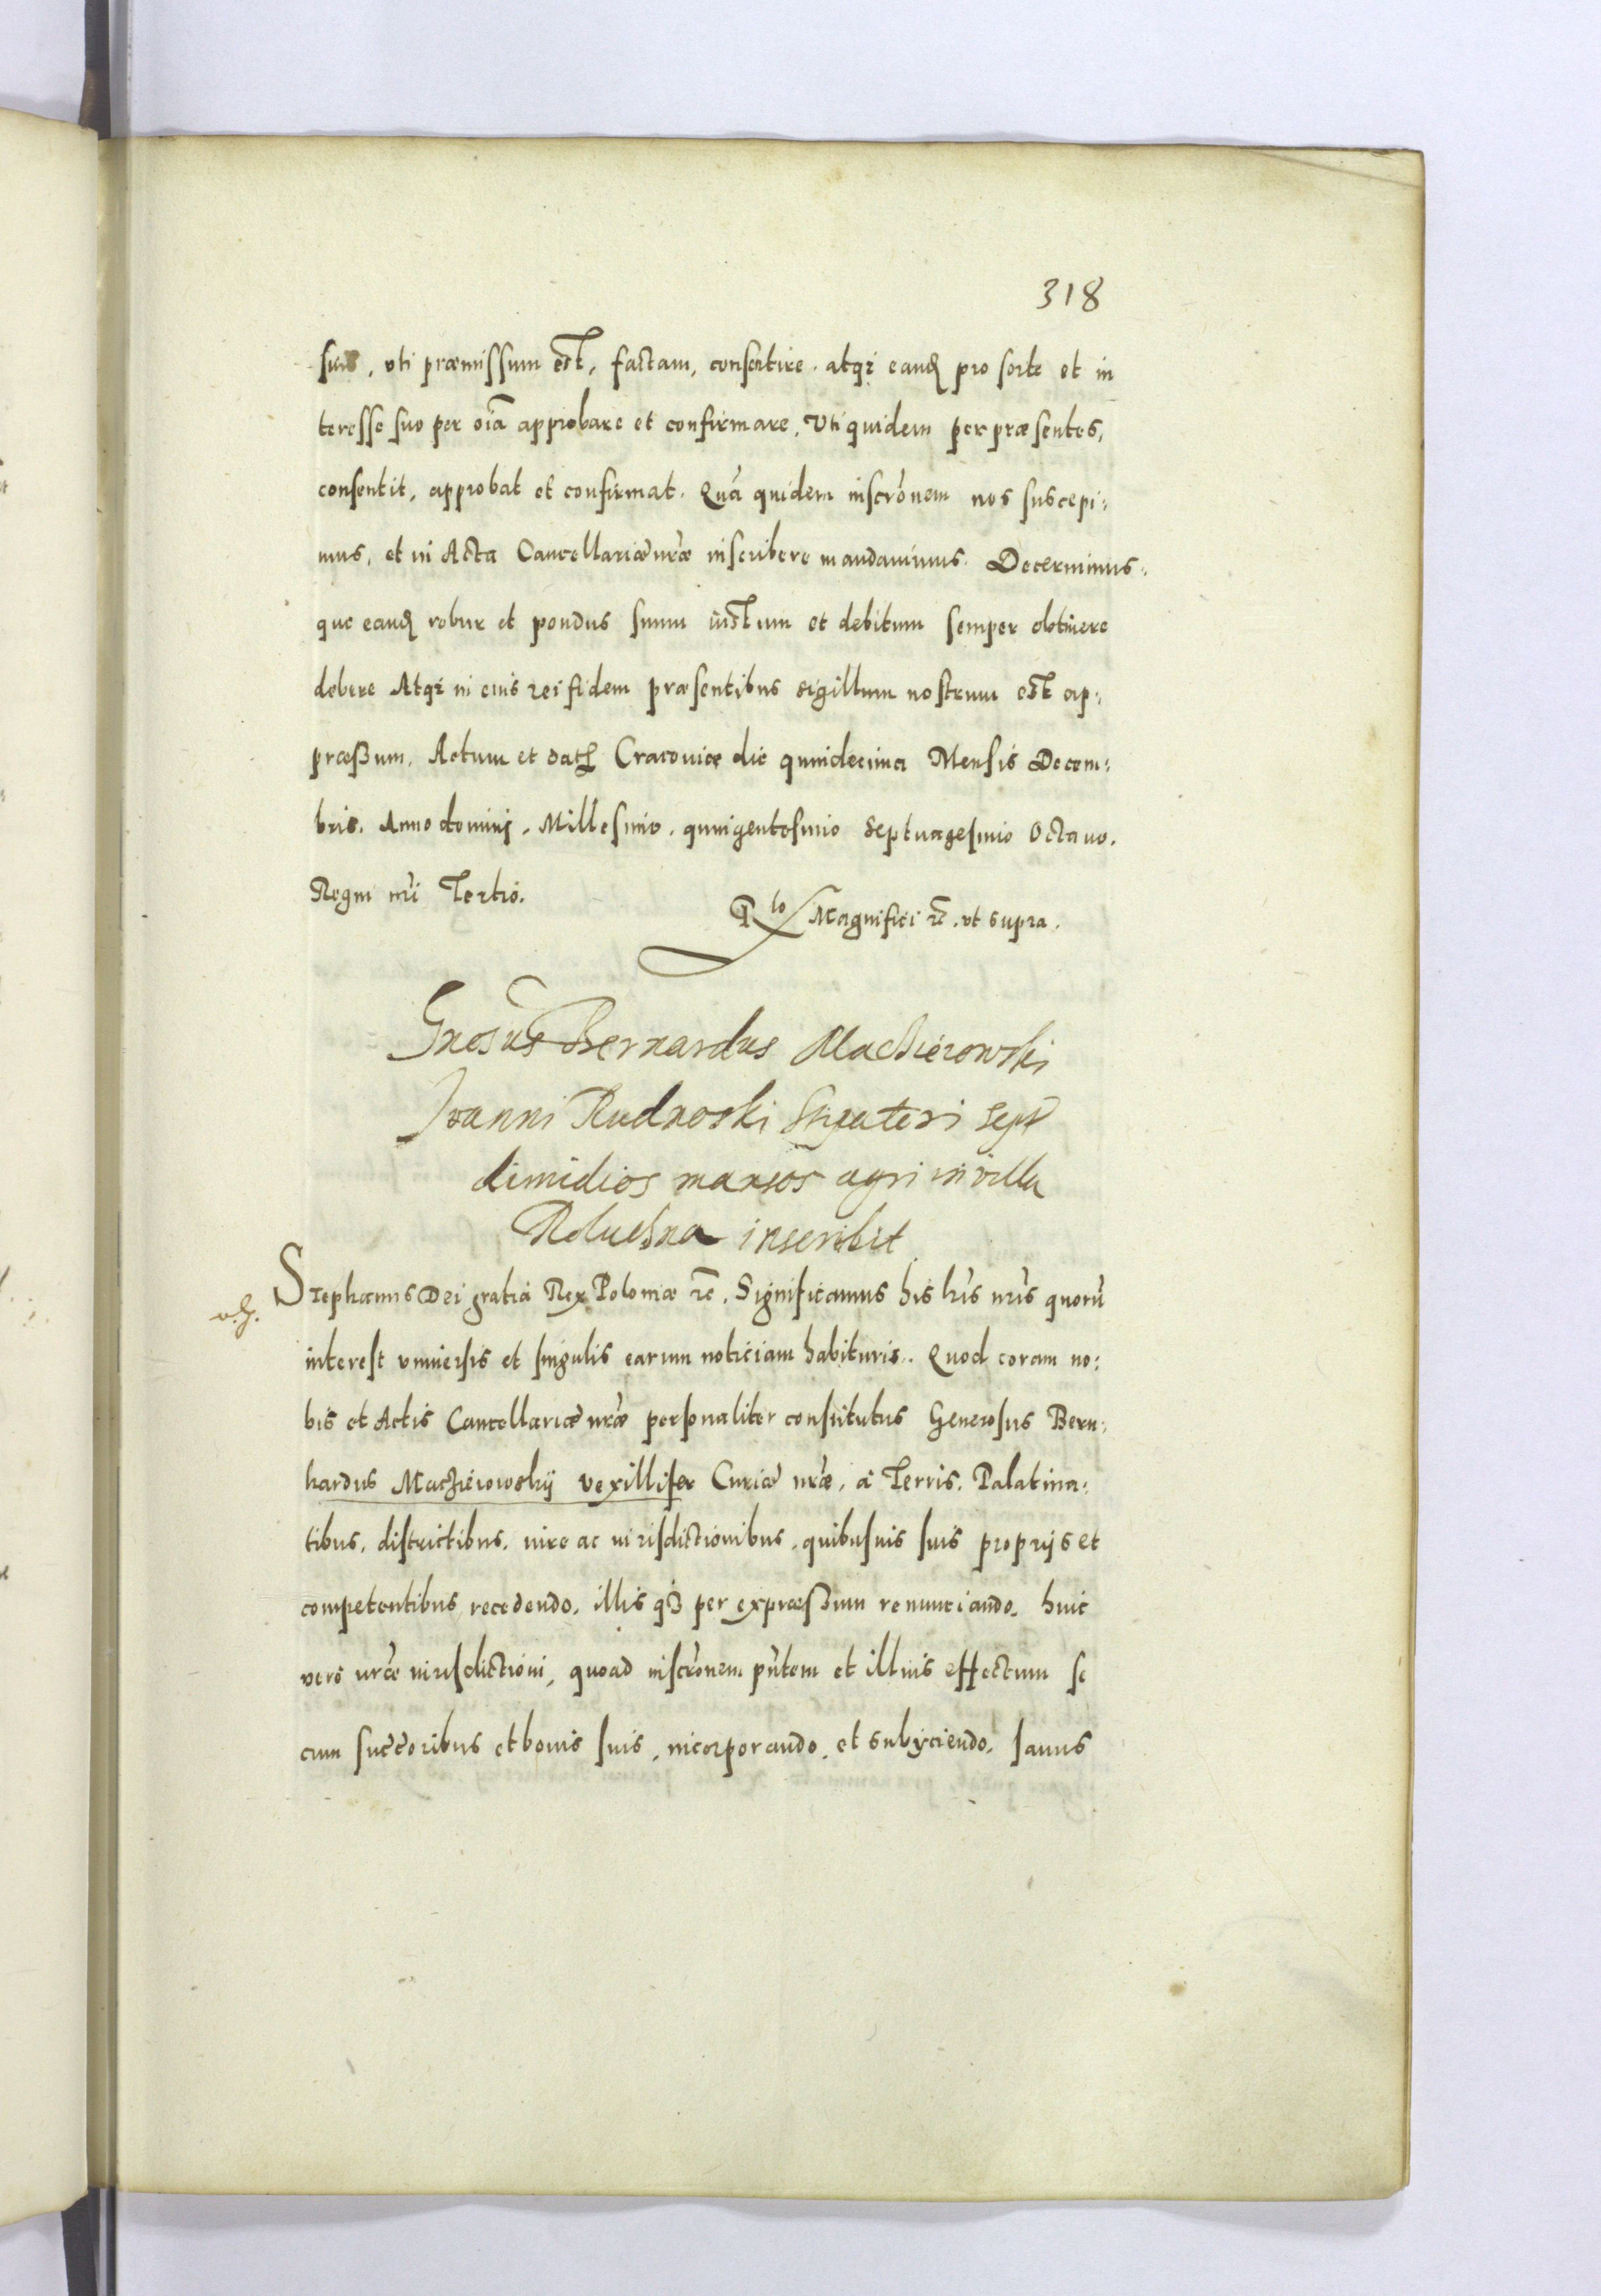 318
suis, vti præmissum est, factam, consentire. atqꝫ eand pro sorte et in
teresse suo per oīa approbare et confirmare. Vti quidem per præsentes,
consentit, approbat et confirmat. Quā quidem inscrōnem nos suscepi:
mus, et in Acta Cancellariæ nr̄æ inscribere mandauimus. Decernimus:
que eand robur et pondus suum iustum et debitum semper obtinere
debere Atqꝫ in eius rei fidem præsentibus sigillum nostrum est ap:
præssum. Actum et dat Cracouiæ die quindecima Mensis Decem:
bris. Anno dominj. Millesimo. quingentesimo Septuagesimo Octauo.
Regni nr̄i Tertio.
Rlo Magnifici rc. vt supra.
Gnosus Bernardus Maciieiowski
Joanni Rudnoski
dimidios mansos agri in villa
inscribit
Stephanus Dei gratia Rex Poloniæ rc. Significamus his lr̄is nr̄is quorū
interest vniuersis et singulis earum noticiam habituris. Quod coram no:
bis et Actis Cancellariæ nr̄æ personaliter constitutus Generosus Bern:
hardus Maczieiowskij vexillifer Curiæ nr̄æ, a Terris. Palatina:
tibus, districtibus. iure ac iurisdictionibus. quibusuis suis proprijs et
competentibus recedendo. illis qꝫ per expræssum renunciando. huic
vero nr̄æ iurisdictioni, quoad inscrōnem pn̄tem et illius effectum se
cum succoribus et bonis suis, incorporando. et subijciendo. sanus